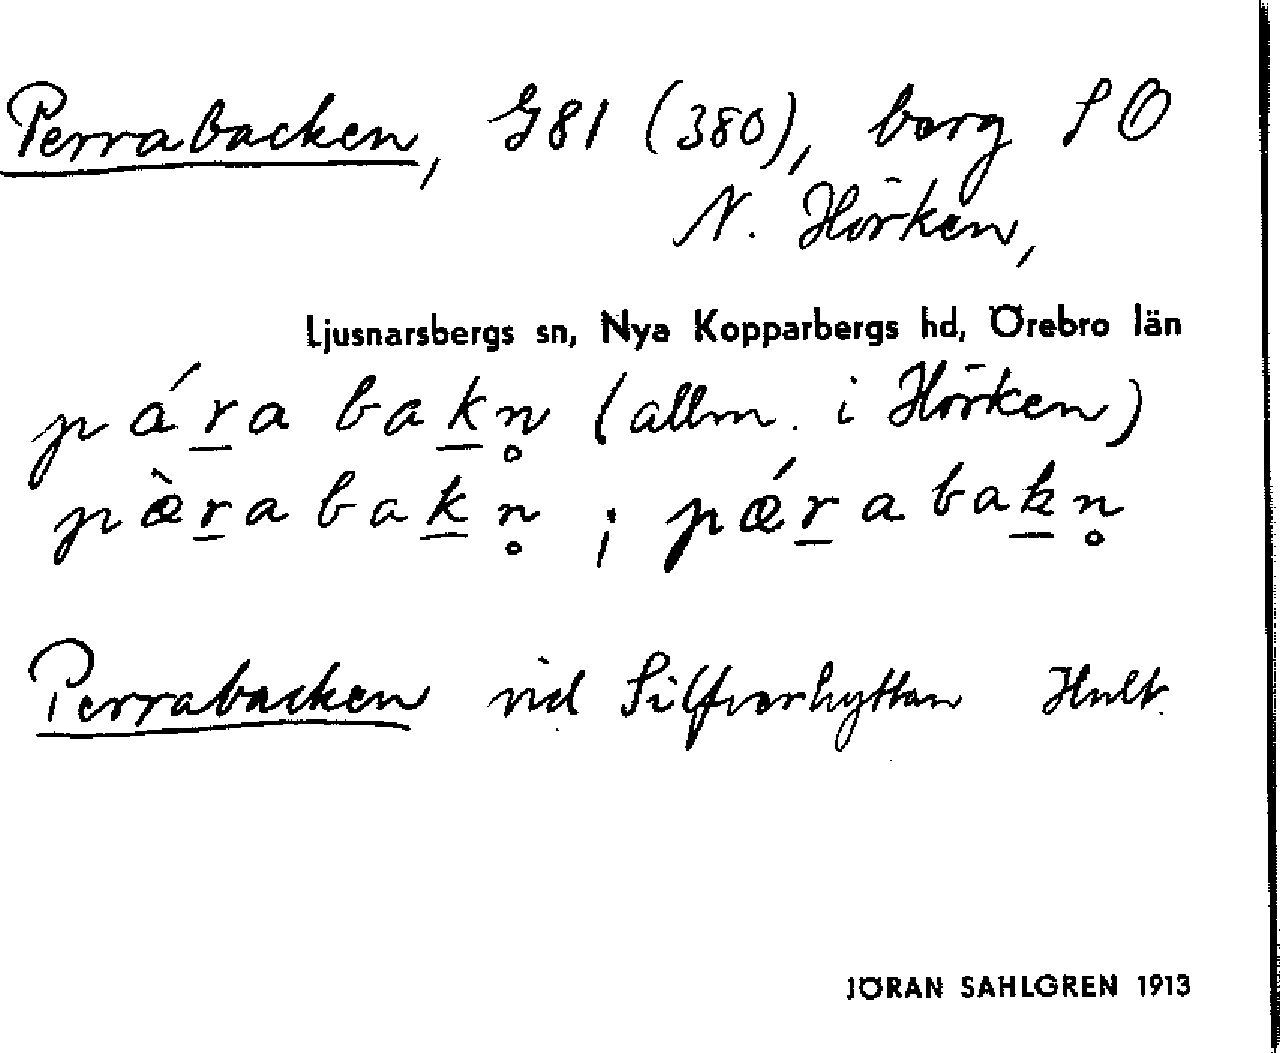 Perrabacken, G81 (380), berg SO
N. Hörken,
Ljusnarsbergs sn, Nya Kopparbergs hd, Örebro län
pára bakn̥ (allm. i Hörken)
pæ̀ra bakn̥ ; pǽra bakn̥
Perrabacken vid Silfverhyttan Hult.
JÖRAN SAHLGREN 1913